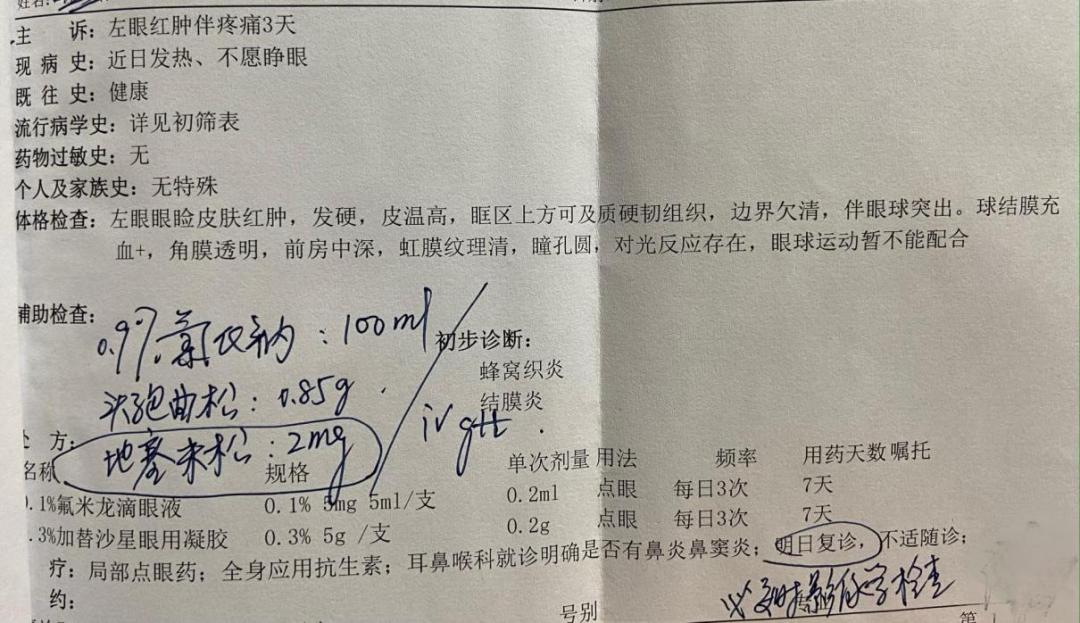 姓名:
主 诉: 左眼红肿伴疼痛3天
现 病 史: 近日发热、不愿睁眼
既 往 史: 健康
流行病学史: 详见初筛表
药物过敏史: 无
个人及家族史: 无特殊
体格检查: 左眼眼睑皮肤红肿，发硬，皮温高，眶区上方可及质硬韧组织，边界欠清，伴眼球突出。球结膜充
血+，角膜透明，前房中深，虹膜纹理清，瞳孔圆，对光反应存在，眼球运动暂不能配合
辅助检查:
0.9%氯化钠: 100ml
初步诊断:
蜂窝织炎
头孢曲松: 0.85g
结膜炎
iv gtt
处 方:
地塞米松: 2mg
名称 规格 单次剂量 用法 频率 用药天数 嘱托
0.1%氟米龙滴眼液 0.1% 5mg 5ml/支 0.2ml 点眼 每日3次 7天
.3%加替沙星眼用凝胶 0.3% 5g /支 0.2g 点眼 每日3次 7天
疗: 局部点眼药；全身应用抗生素；耳鼻喉科就诊明确是否有鼻炎鼻窦炎；明日复诊，不适随诊；
约:
必要时影像学检查
号别
第